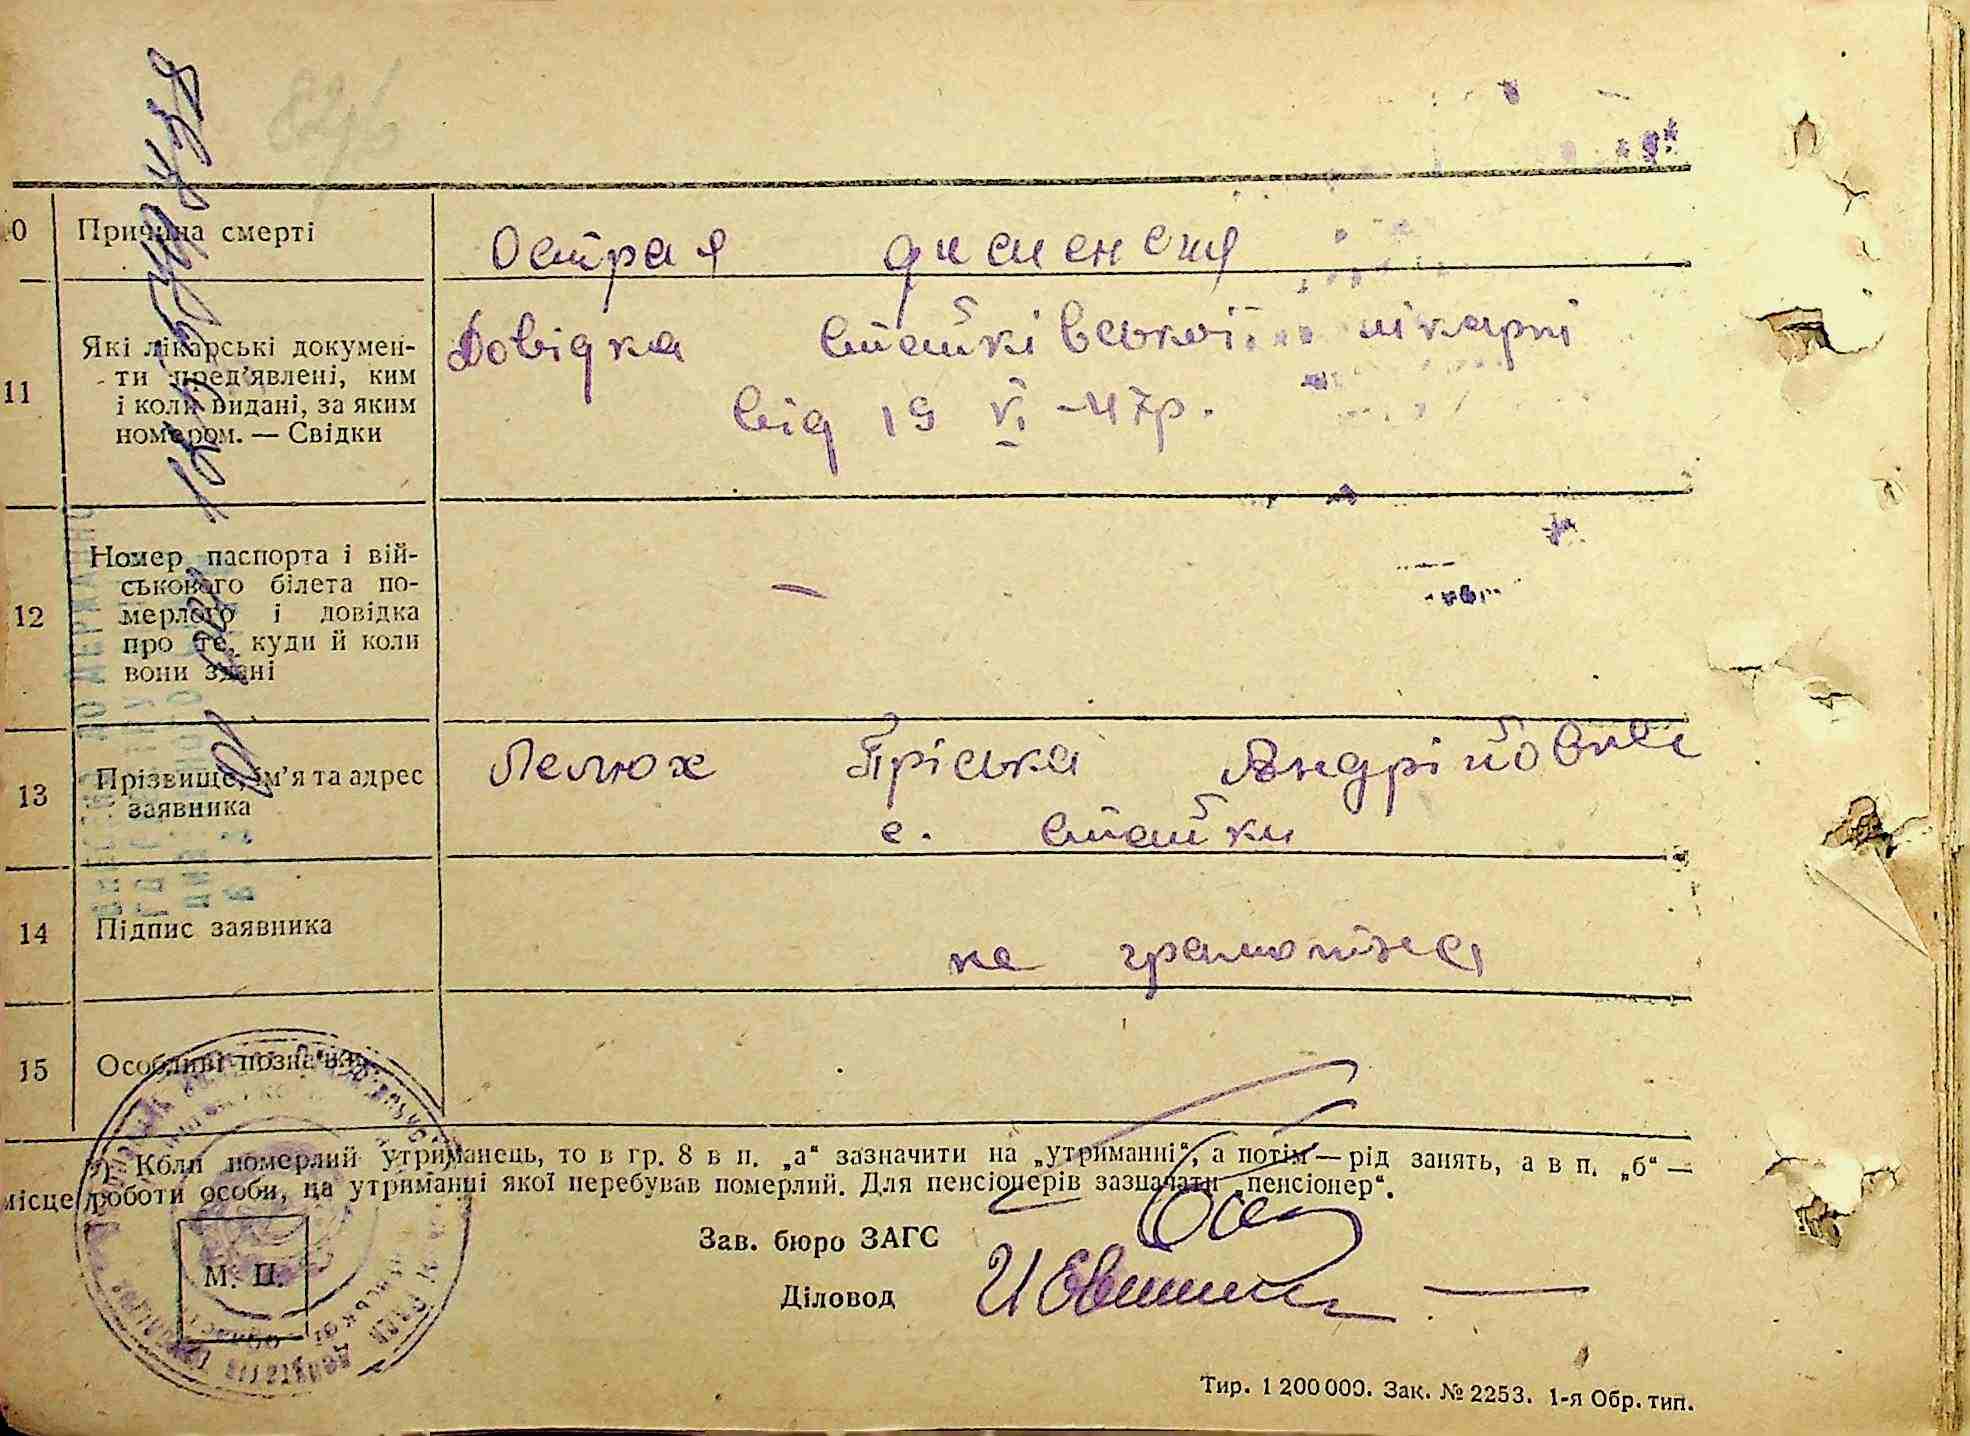 10 Причина смерті Острая диспепсия
11 Які лікарські докумен-
ти пред’явлені, ким
і коли видані, за яким
номером. — Свідки
Довідка Стайківської лікарні
від 19 VI -47р.
12 Номер паспорта і вій-
ськового білета по-
мерлого і довідка
про те, куди й коли
вони здані
—
13 Прізвище, ім’я та адрес
заявника
Лелюх Пріська Андрійовна
с. Стайки
14 Підпис заявника не грамотна
15 Особливі позначки
*) Коли померлий утриманець, то в гр. 8 в п. „а“ зазначити на „утриманні“, а потім — рід занять, а в п. „б“ —
місце роботи особи, на утриманні якої перебував померлий. Для пенсіонерів зазначати „пенсіонер“.
Зав. бюро ЗАГС
Діловод
М. П.
Тир. 1 200 000. Зак. № 2253. 1-я Обр. тип.